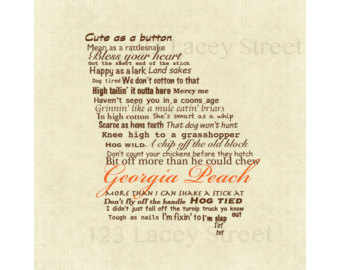 123 Lacey Street
Cute as a button
Mean as a rattlesnake
Bless your heart
Got the short end of the stick
Happy as a lark Land sakes
Dog tired We don't cotton to that
High tailin' it outta here Mercy me
Haven't seen you in a coons age
Grinnin' like a mule eatin' briars
In high cotton She's smart as a whip
Scarce as hens teeth That dog won't hunt
Knee high to a grasshopper
Hog wild A chip off the old block
Don't count your chickens before they hatch
Bit off more than he could chew
Georgia Peach
More than I can shake a stick at
Don't fly off the handle Hog tied
I didn't just fall off the turnip truck ya know
Tough as nails I'm fixin' to I'm slap out
Tot tot
123 Lacey Street